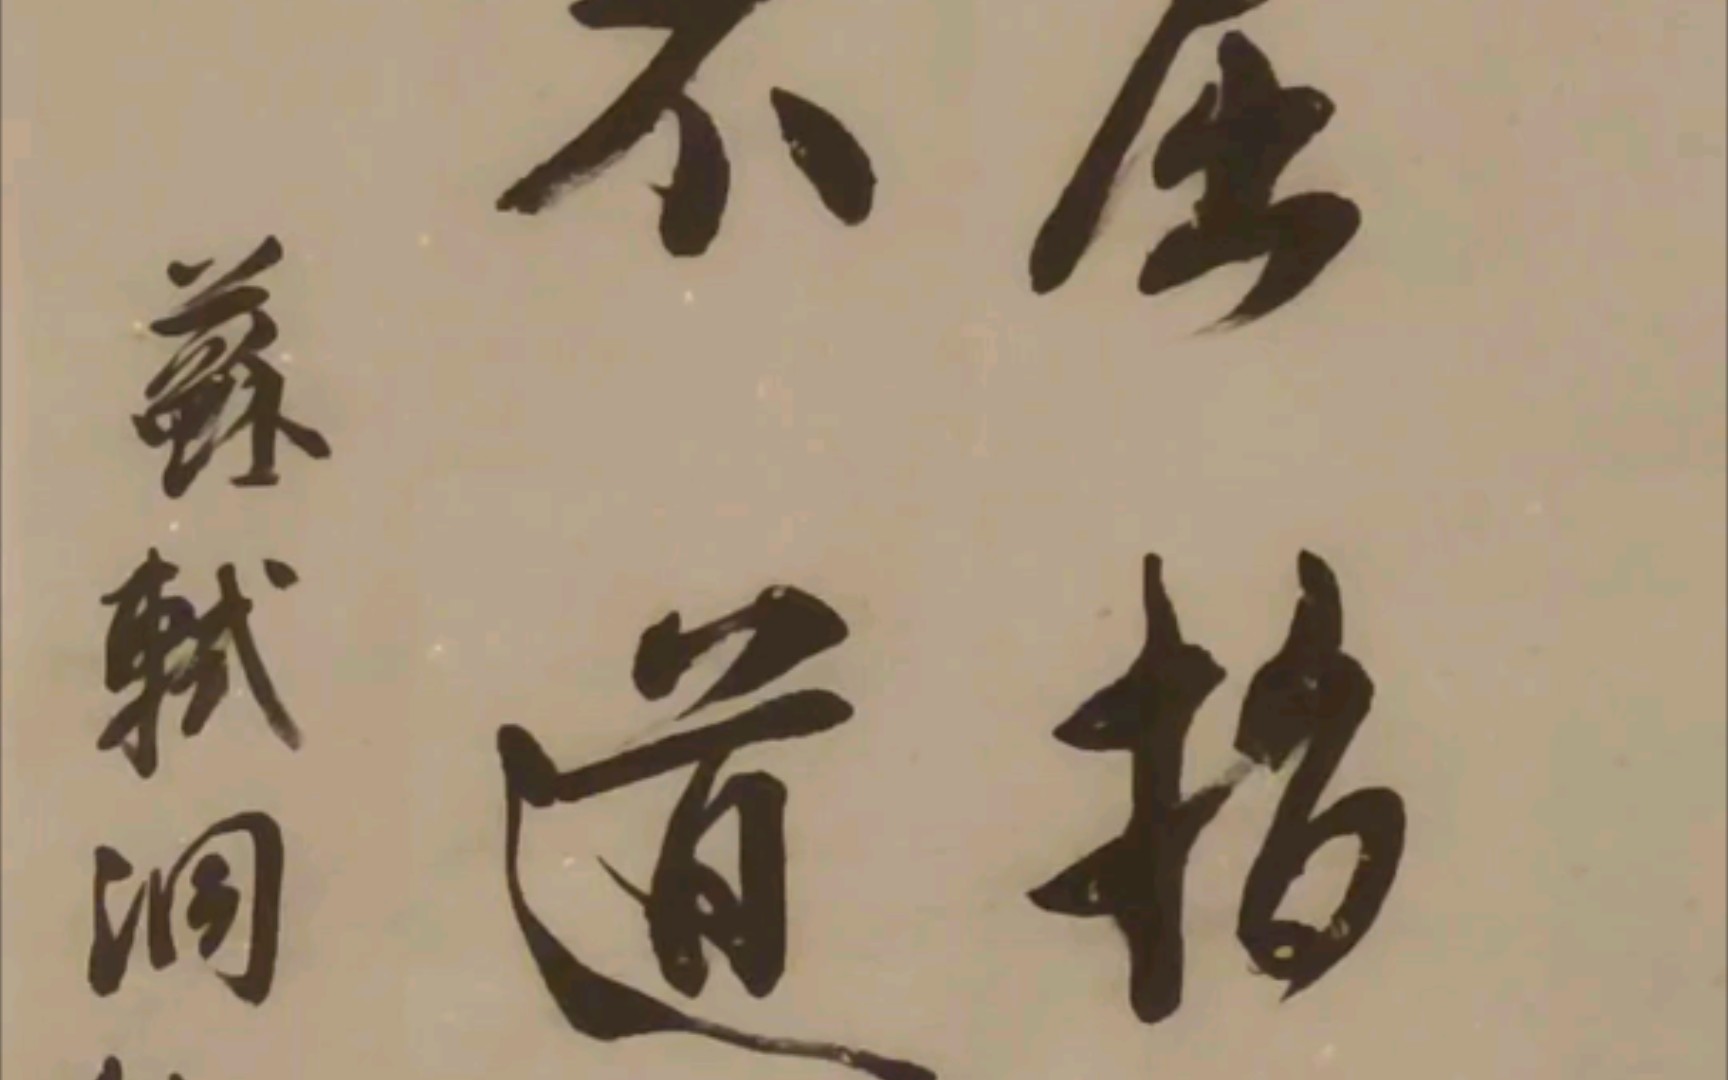 屈指
不道
蘇軾洞